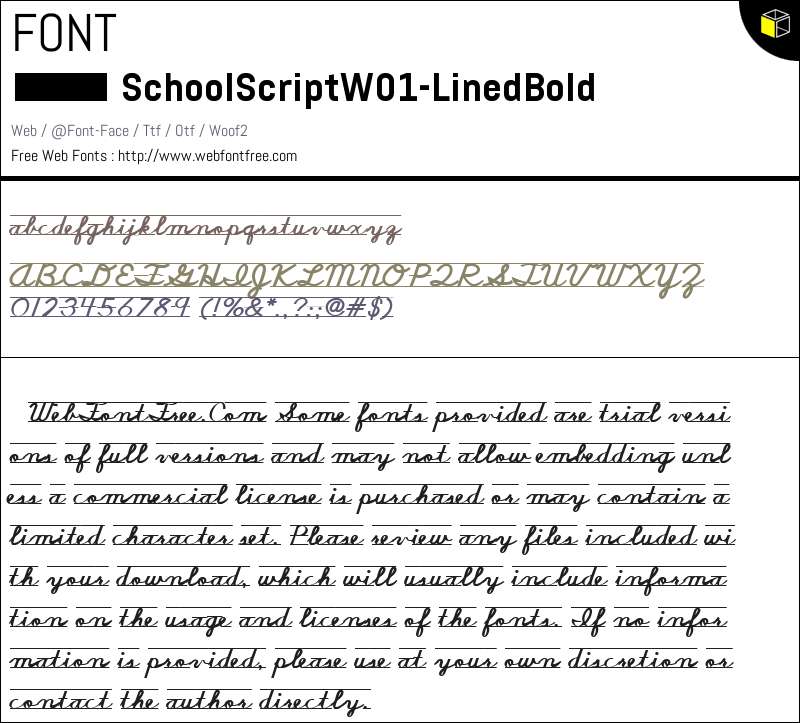 FONT
SchoolScriptW01-LinedBold
Web / @Font-Face / Ttf / Otf / Woof2
Free Web Fonts : http://www.webfontfree.com
abcdefghijklmnopqrstuvwxyz
ABCDEFGHIJKLMNOPQRSTUVWXYZ
0123456789 (!%&*.,?:;@#$)
WebFontFree.Com Some fonts provided are trial versi
ons of full versions and may not allow embedding unl
ess a commercial license is purchased or may contain a
limited character set. Please review any files included wi
th your download, which will usually include informa
tion on the usage and licenses of the fonts. If no infor
mation is provided, please use at your own discretion or
contact the author directly.